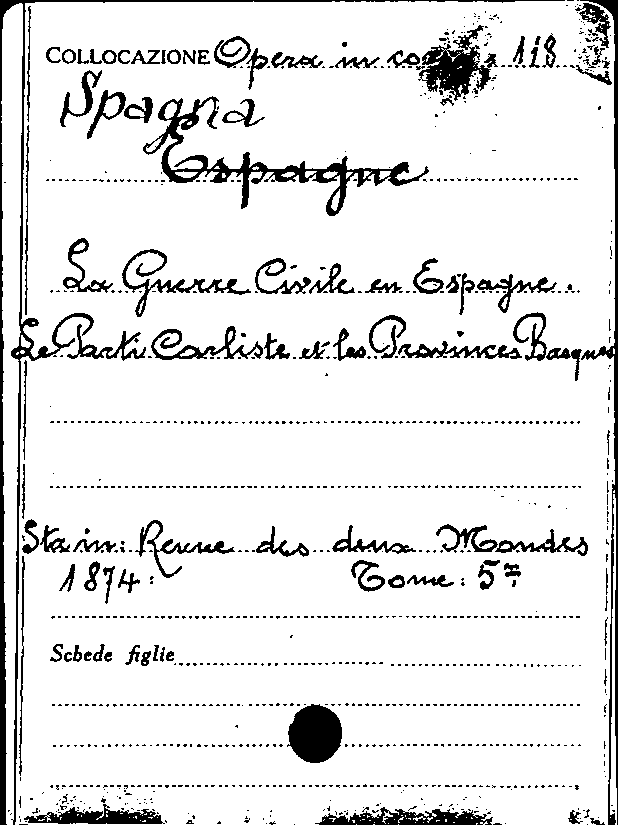 COLLOCAZIONE Opera in 118
Spagna
Espagne
La Guerre Civile en Espagne.
Le Parti Carliste et les Provinces Basques
Sta in: Revue des deux Mondes
1874: Tome: 5=
Schede figlie